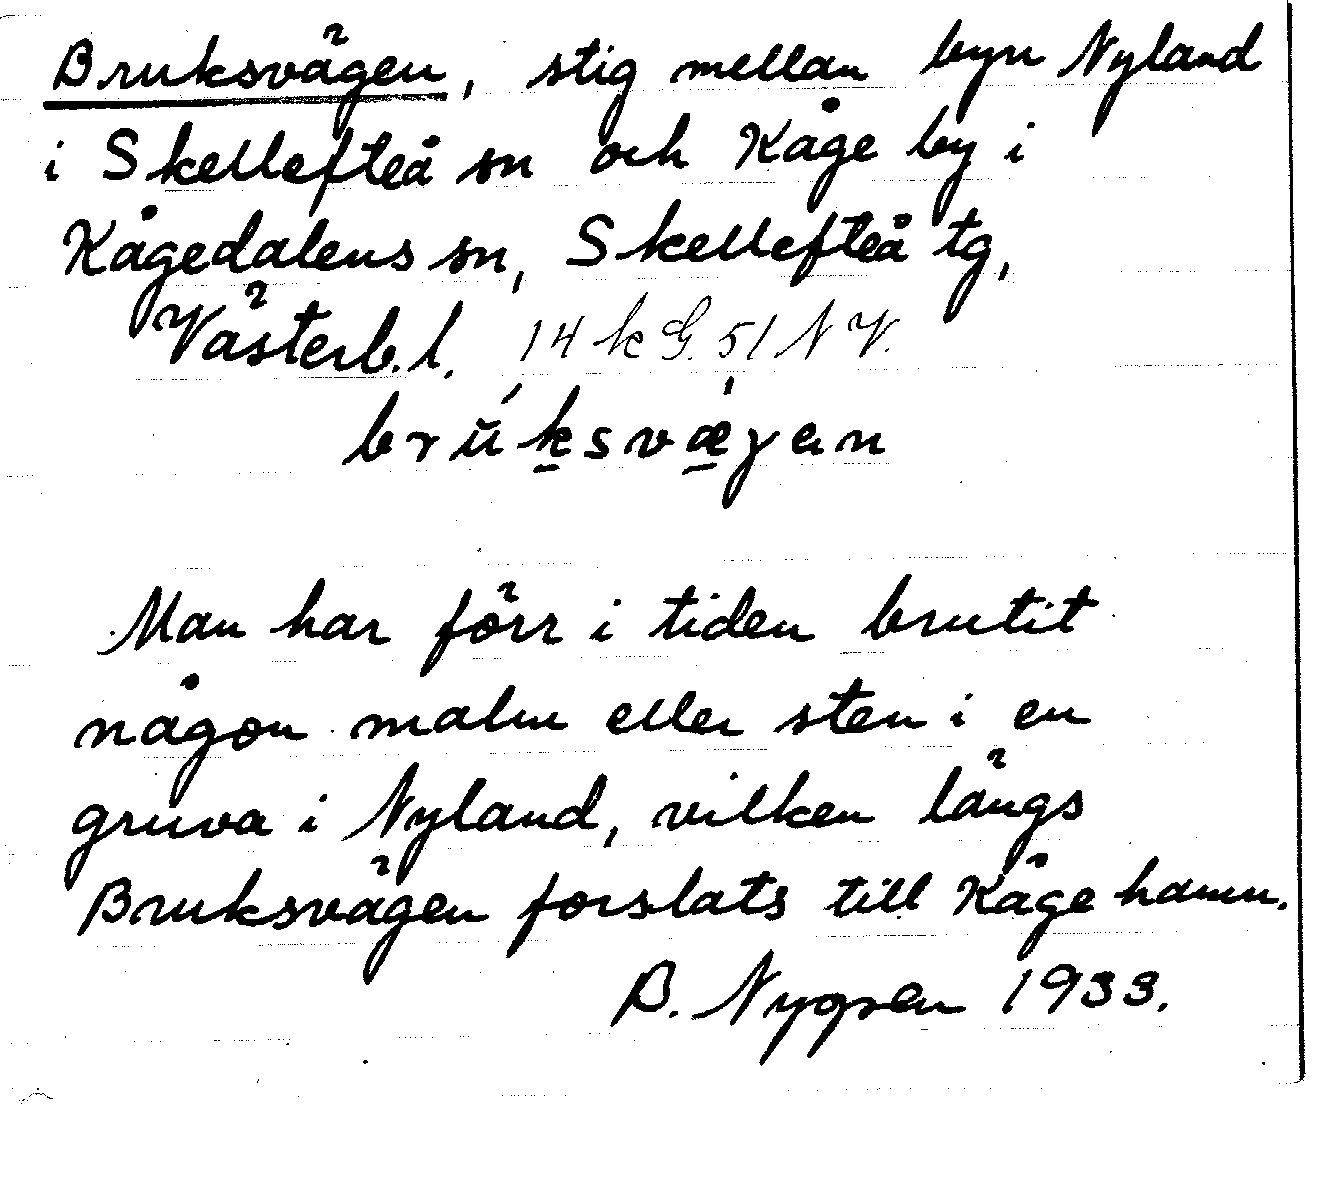 Bruksvägen, stig mellan byn Nyland
i Skellefteå sn och Kåge by i
Kågedalens sn, Skellefteå tg,
Västerb. l. 14 k G. 51 N V.
brúksvæ̀γan
Man har förr i tiden brutit
någon malm eller sten i en
gruva i Nyland, vilken längs
Bruksvägen forslats till Kåge hamn.
B. Nygren 1933.